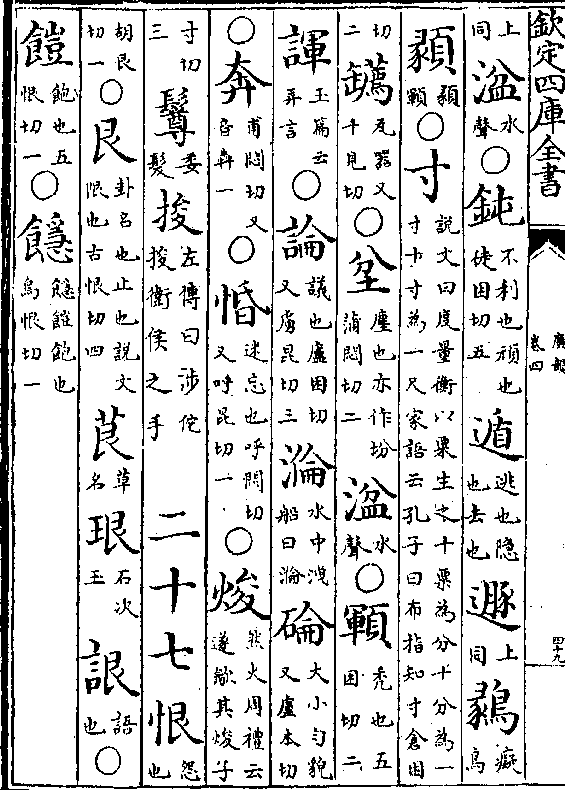 欽定四庫全書
廣韻
卷四
四十九
上同湓水聲○鈍不利也頑也徒困切五遁逃也隱也去也遯上同鶨癡鳥
顐○寸說文曰度量衡以粟生之十粟為分十分為一寸十寸為一尺家語云孔子曰布指知寸倉困
切二瓦器又千見切○坌塵也亦作坋蒲悶切二湓水聲○顐禿也五困切二
諢玉篇云弄言○論議也盧困切又盧昆切三淪水中洩船曰淪碖大小勻貌又盧本切
○奔甫悶切又音犇一○惛迷忘也呼悶切又呼昆切一○焌然火周禮云遂龡其焌子
寸切三鐏委髮捘左傳曰涉佗捘衛侯之手 二十七恨怨也
胡艮切一○艮卦名也止也說文限也古恨切四茛草名珢石次玉詪語也○
皚飽也五恨切一○饐飽也烏恨切一